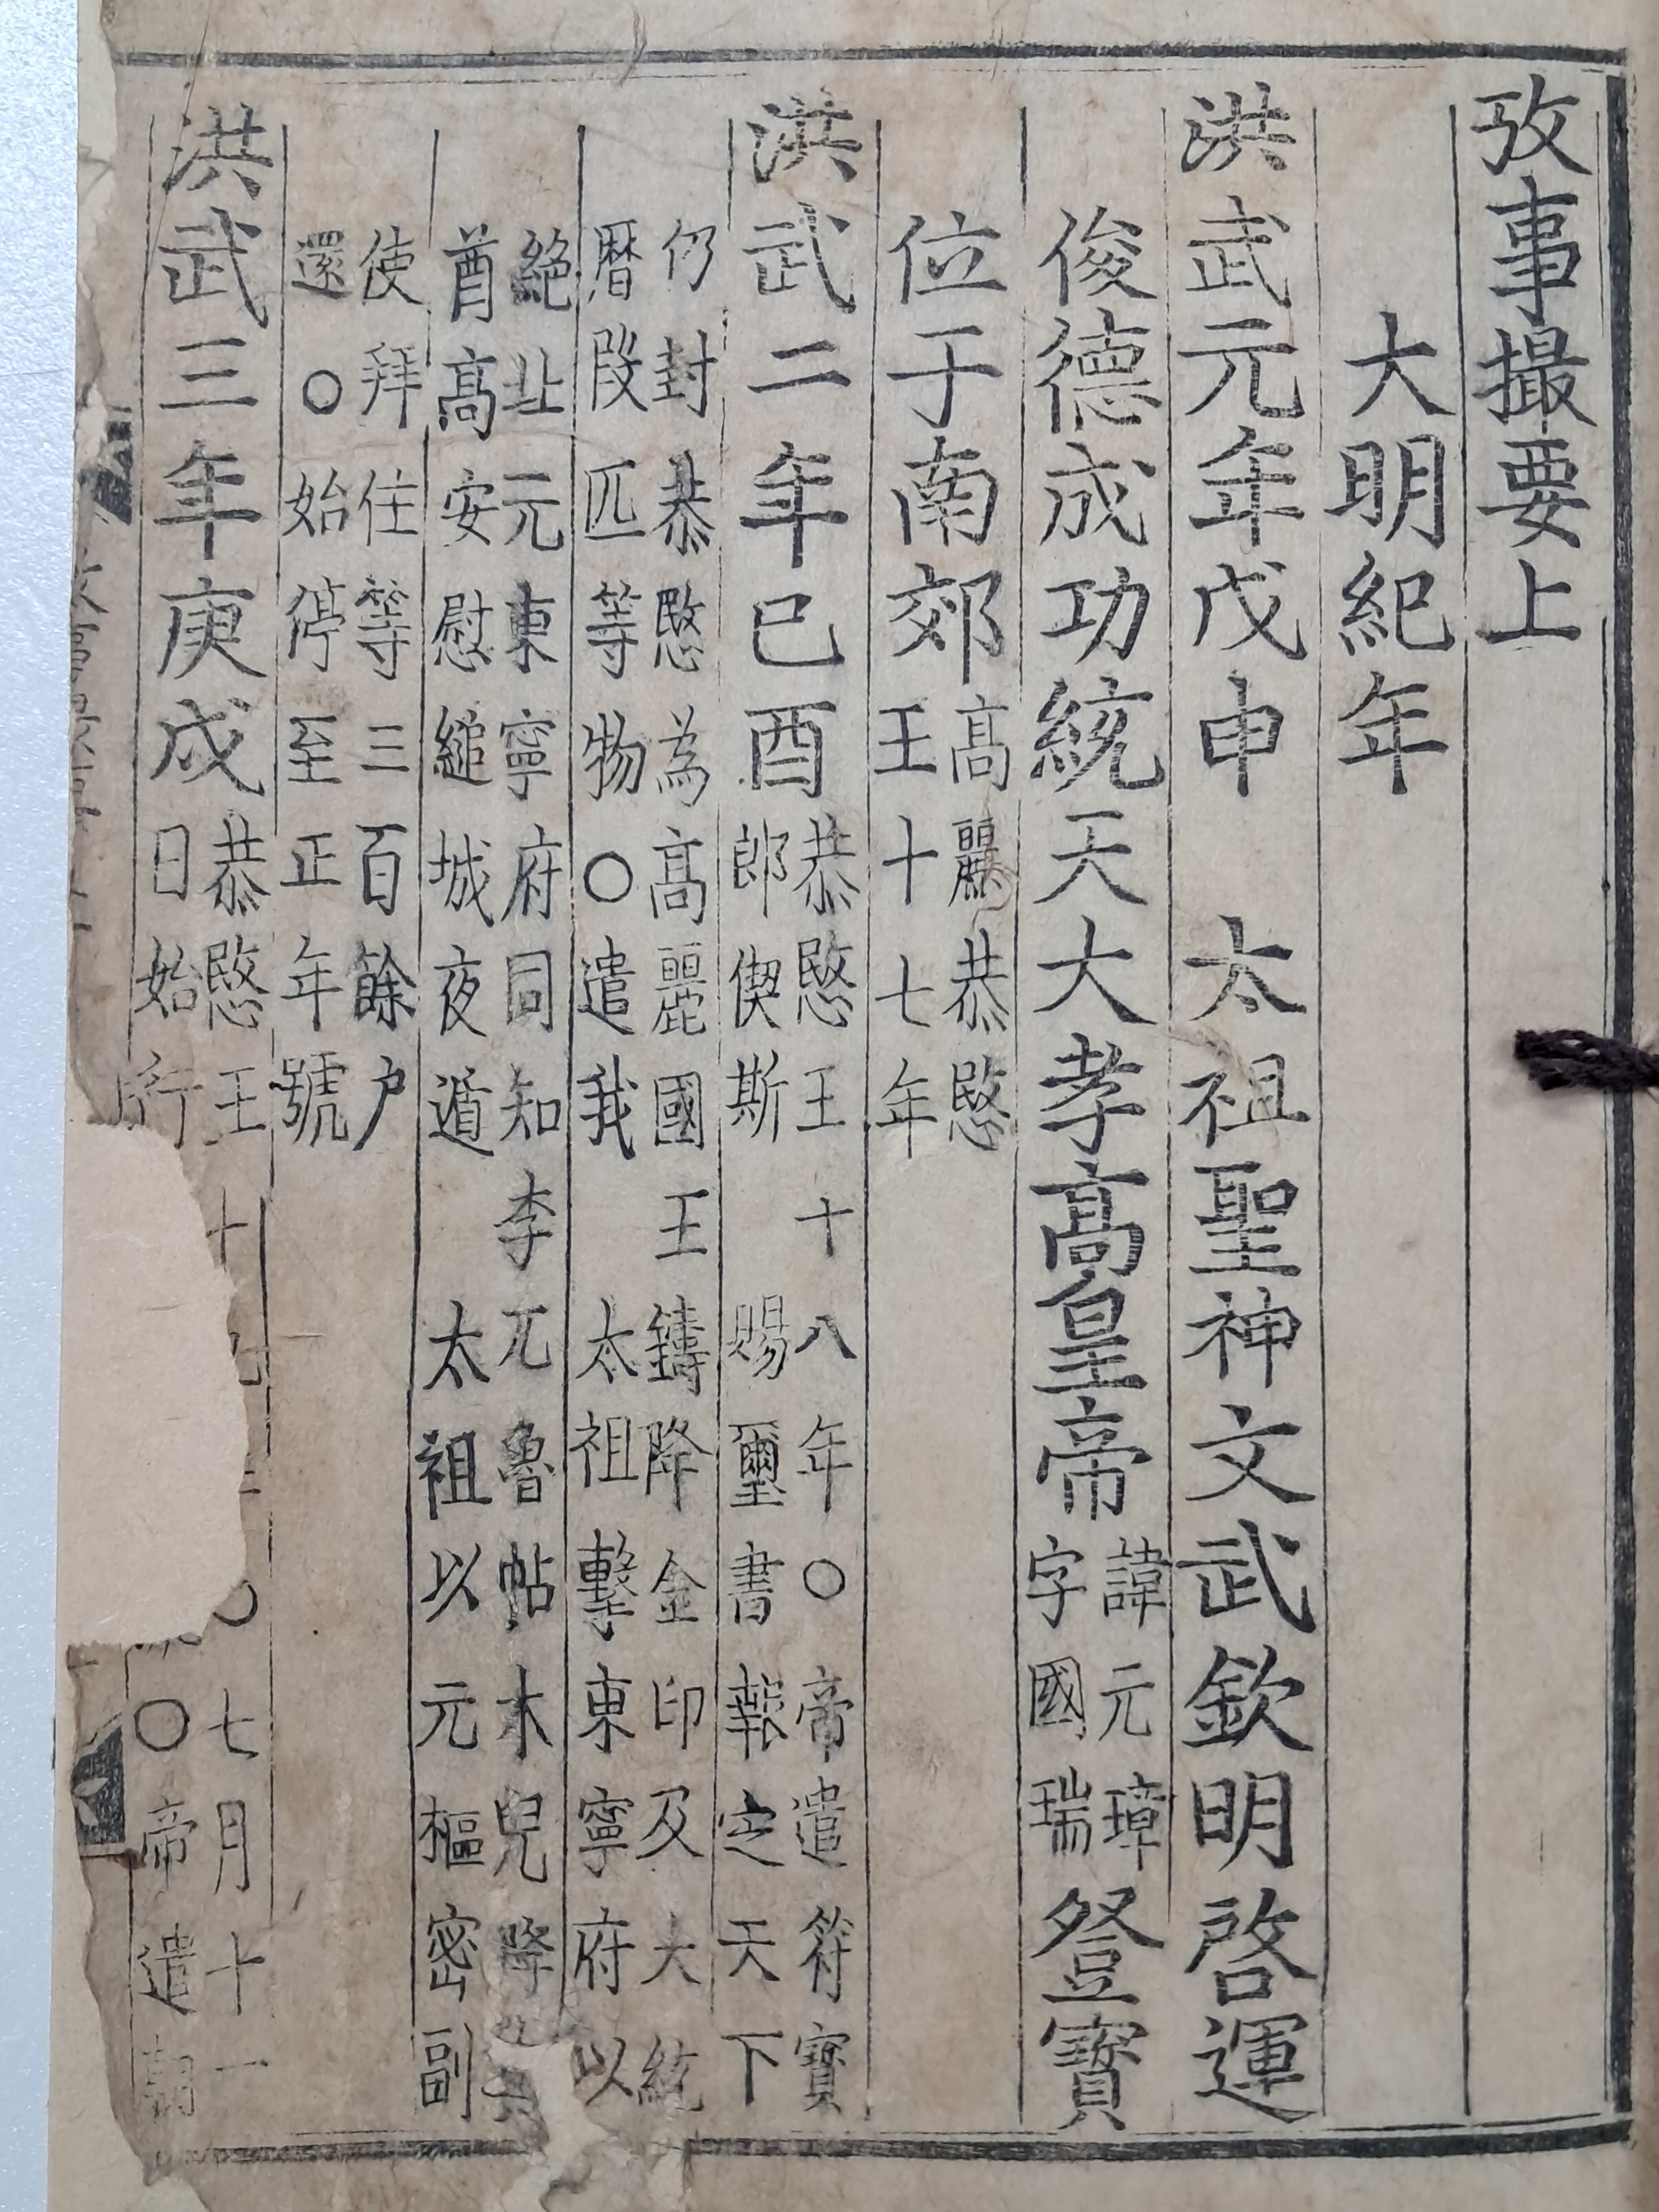 攷事撮要上
大明紀年
洪武元年戊申 太祖聖神文武欽明啓運
俊德成功統天大孝高皇帝
諱元璋
字國瑞
登寶
位于南郊
高麗恭愍
王十七年
洪武二年己酉
恭愍王十八年○帝遣符寶
郎偰斯 賜璽書報定天下
仍封恭愍為高麗國王鑄降金印及大統
曆段匹等物○遣我 太祖擊東寧府以
絶北元東寧府同知李兀魯帖木兒降
酋高安慰縋城夜遁 太祖以元樞密副
使拜住等三百餘户
還○始停至正年號
洪武三年庚戌
恭愍王十 ○七月十一
日始行 ○帝遣朝